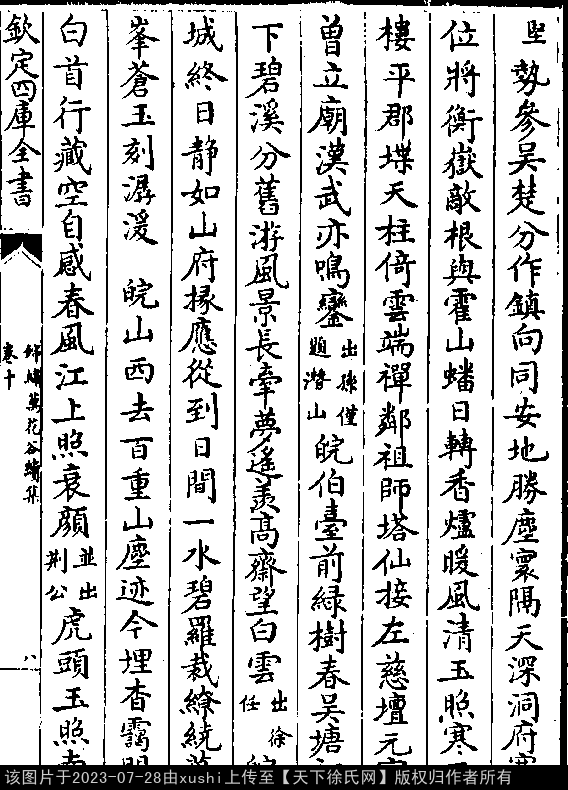 堅勢參吳楚分作鎮向同安地勝塵寰隔天深洞府寛
位將衡嶽敵根與霍山蟠日轉香爐暖風清玉照寒
樓平郡堞天柱倚雲端禪鄰祖師塔仙接左慈壇元宗
曾立廟漢武亦鳴鑾出孫僅題潛山皖伯臺前綠樹春吳塘
下碧溪分舊游風景長牽夢遙羨高齋望白雲出徐任
城終日靜如山府掾應從到日間一水碧羅裁繚繞萬
峯蒼玉刻潺湲 皖山西去百重山塵迹今埋杳靄間
白首行藏空自感春風江上照衰顏並出荆公虎頭玉照
欽定四庫全書
錦繡萬花谷續集
卷十
八
该图片于2023-07-28由xushi上传至【天下徐氏网】版权归作者所有